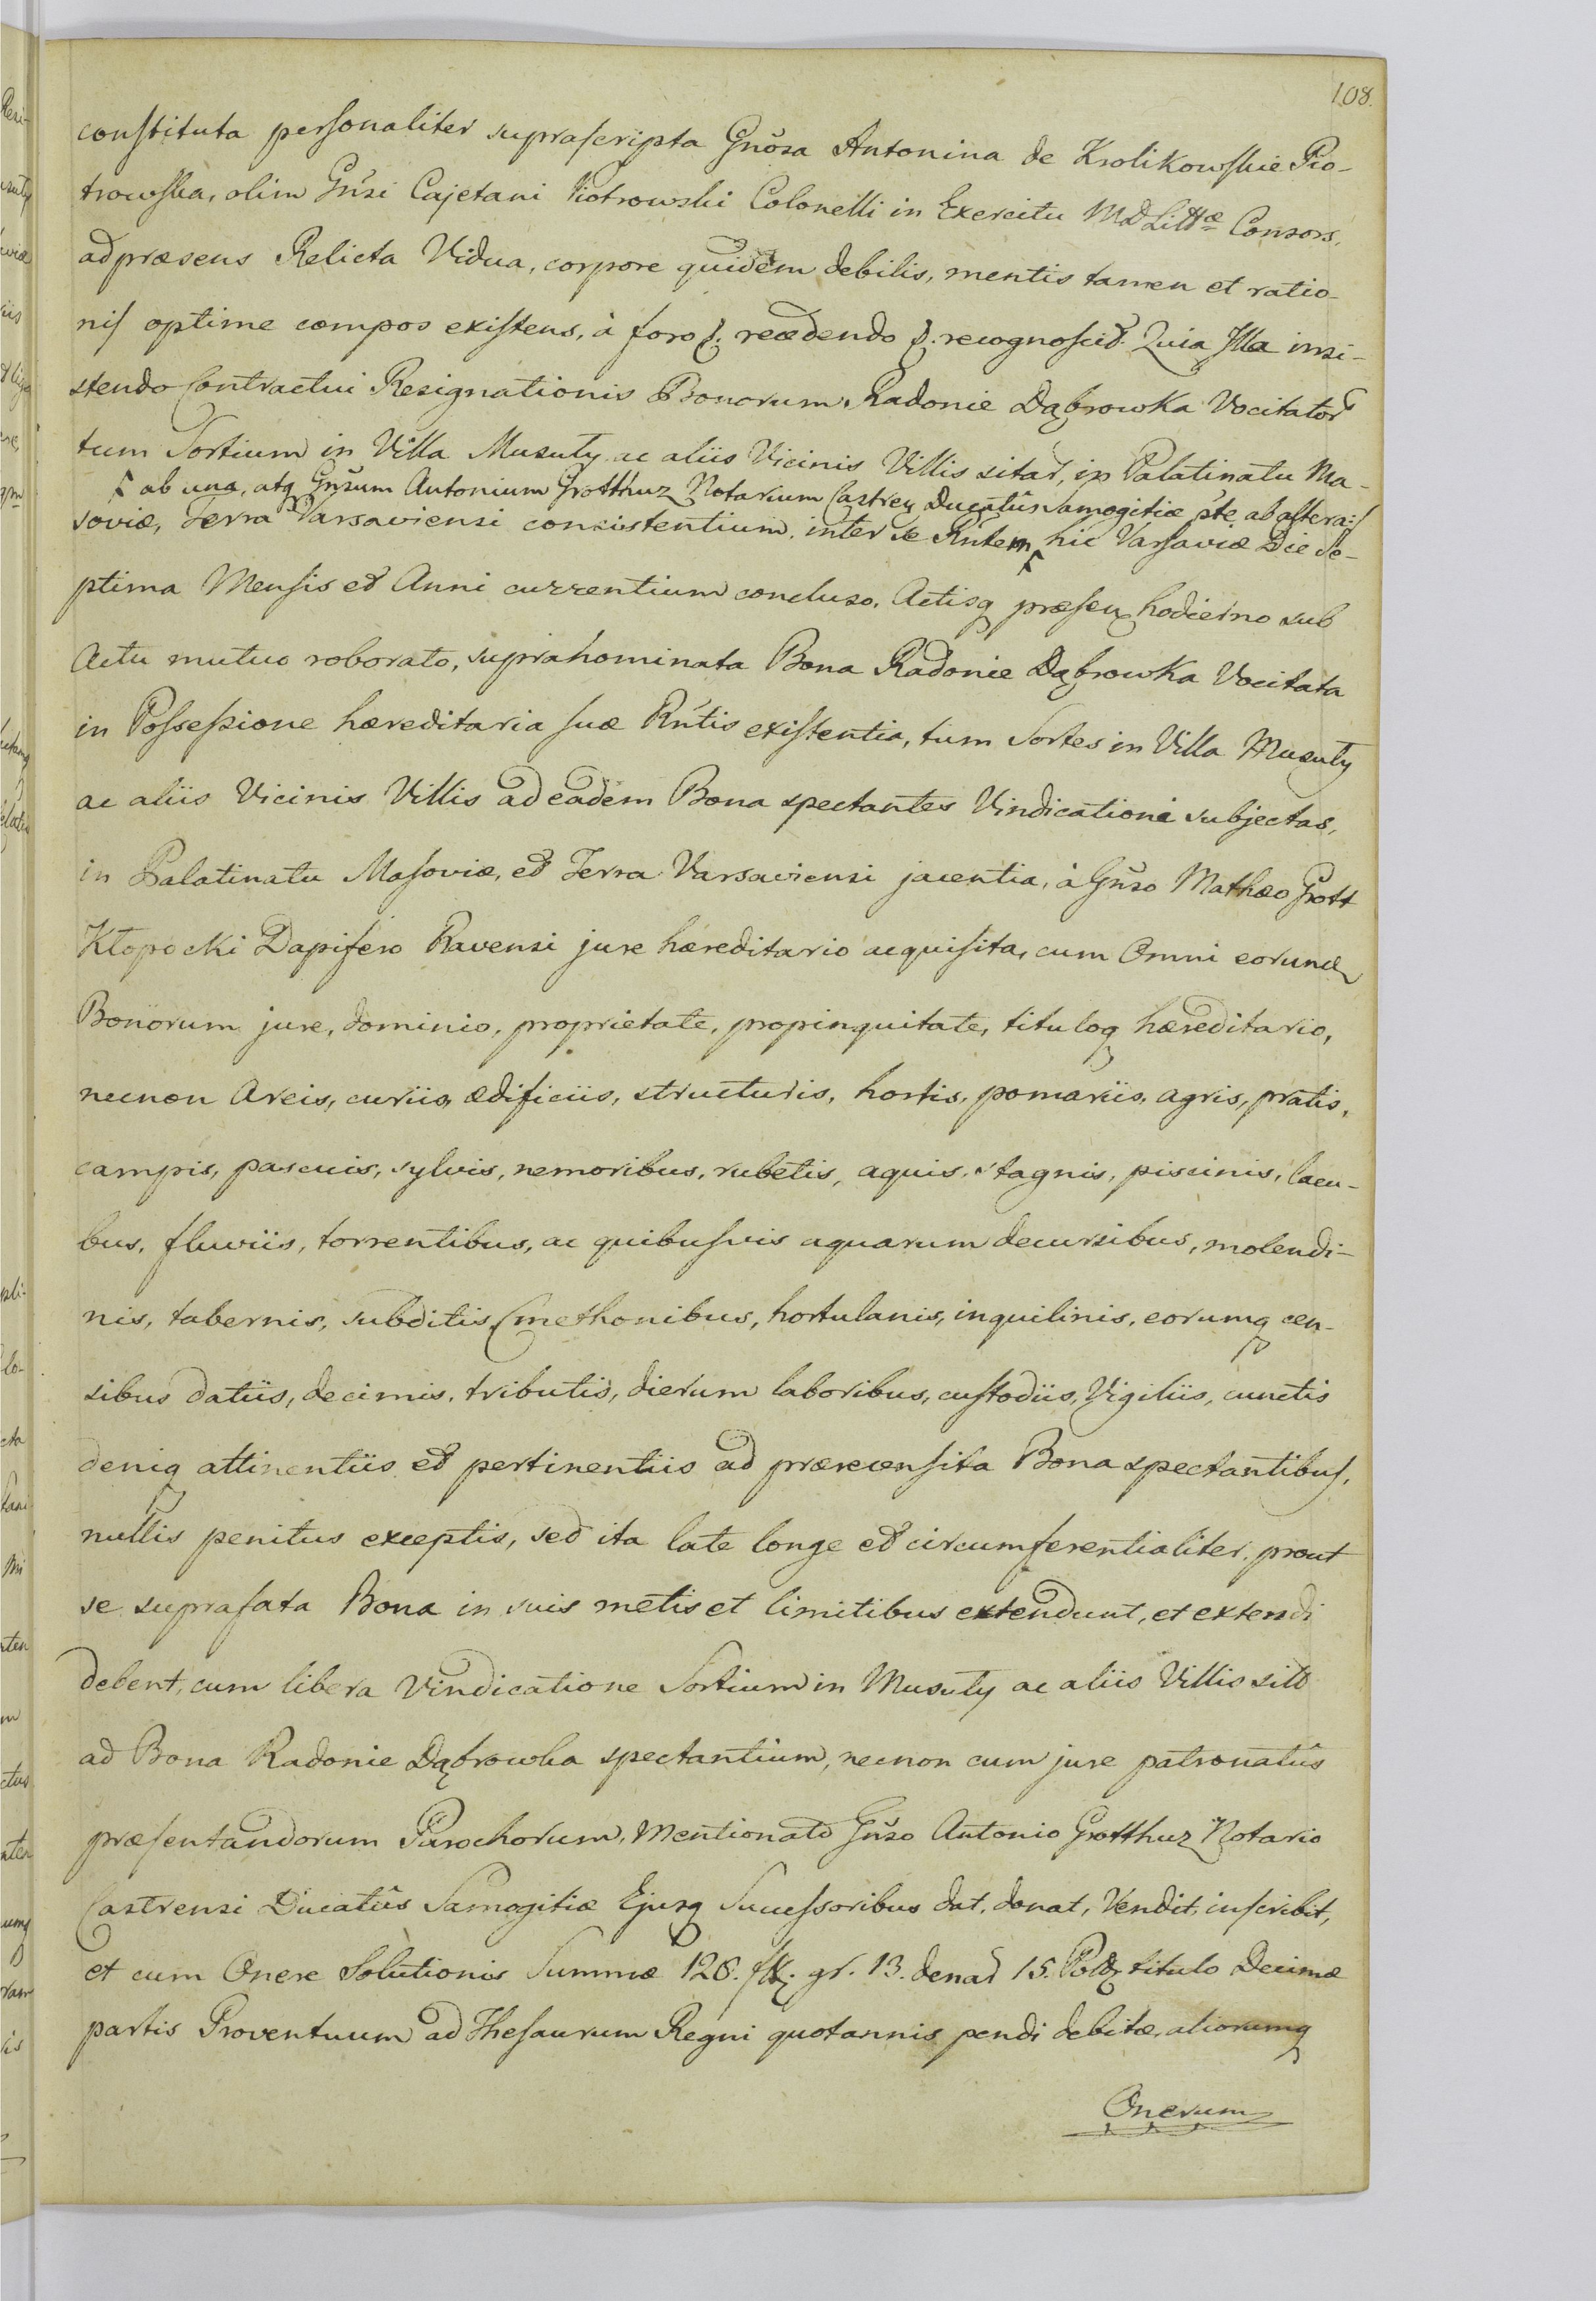 108.
constituta personaliter suprascripta Gnosa Antonina de Krolikowskie Pio-
trowska, olim Gnsi Cajetani Piotrowski Colonelli in Exercitu M D Littæ Consors,
ad præsens Relicta Vidua, corpore quidem debilis, mentis tamen et ratio-
nis optime compos existens, à foro &. recedendo &. recognoscit. Quia Illa insi-
stendo Contractui Resignationis Bonorum Radonie Dąbrowka Vocitator
tum Sortium in Villa Musuły ac aliis Vicinis Villis sitar, in Palatinatu Ma-
ab una, atq Gnsum Antonium Grotthuz Notarium Castren Ducatûs Samogitiæ pte ab altera:/
soviæ, Terra Varsaviensi consistentium, inter se Rntem hic Varsaviæ Die Se-
ptima Mensis et Anni currentium concluso, Actisq præsen hodierno sub
Actu mutuo roborato, supranominata Bona Radonie Dąbrowka Vocitata
in Possessione hæreditaria suæ Rntis existentia, tum Sortes in Villa Musuły
ac aliis Vicinis Villis ad eadem Bona spectantes Vindicationi subjectas,
in Palatinatu Masoviæ, et Terra Varsaviensi jacentia, à Gnso Mathæo Grott
Kłopocki Dapifero Ravensi jure hæreditario acquisita, cum Omni eorund
Bonorum jure, dominio, proprietate, propinquitate, tituloq hæreditario,
necnon Areis, curiis, ædificiis, structuris, hortis, pomariis, agris, pratis,
campis, pascuis, sylvis, nemoribus, rubetis, aquis, stagnis, piscinis, lacu-
bus, fluviis, torrentibus, ac quibusvis aquarum decursibus, molendi-
nis, tabernis, subditis Cmethonibus, hortulanis, inquilinis, eorumq cen-
sibus datiis, decimis, tributis, dierum laboribus, custodiis, Vigiliis, cunctis
deniq attinentiis et pertinentiis ad præcensita Bona spectantibus,
nullis penitus exceptis, sed ita late longe et circumferentialiter, prout
se suprafata Bona in suis metis et limitibus extendunt, et extendi
debent, cum libera Vindicatione Sortium in Musuły ac aliis Villis sitt
ad Bona Radonie Dąbrowka spectantium, necnon cum jure patronatûs
præsentandorum Parochorum, Mentionato Gnso Antonio Grotthuz Notario
Castrensi Ducatûs Samogitiæ Ejusq Successoribus dat, donat, Vendit, inscribit,
et cum Onere Solutionis Summæ 126. fl. gr. 13. denar 15. Pol titulo Decimæ
partis Proventuum ad Thesaurum Regni quotannis pendi debitæ, aliorumq
Onerum